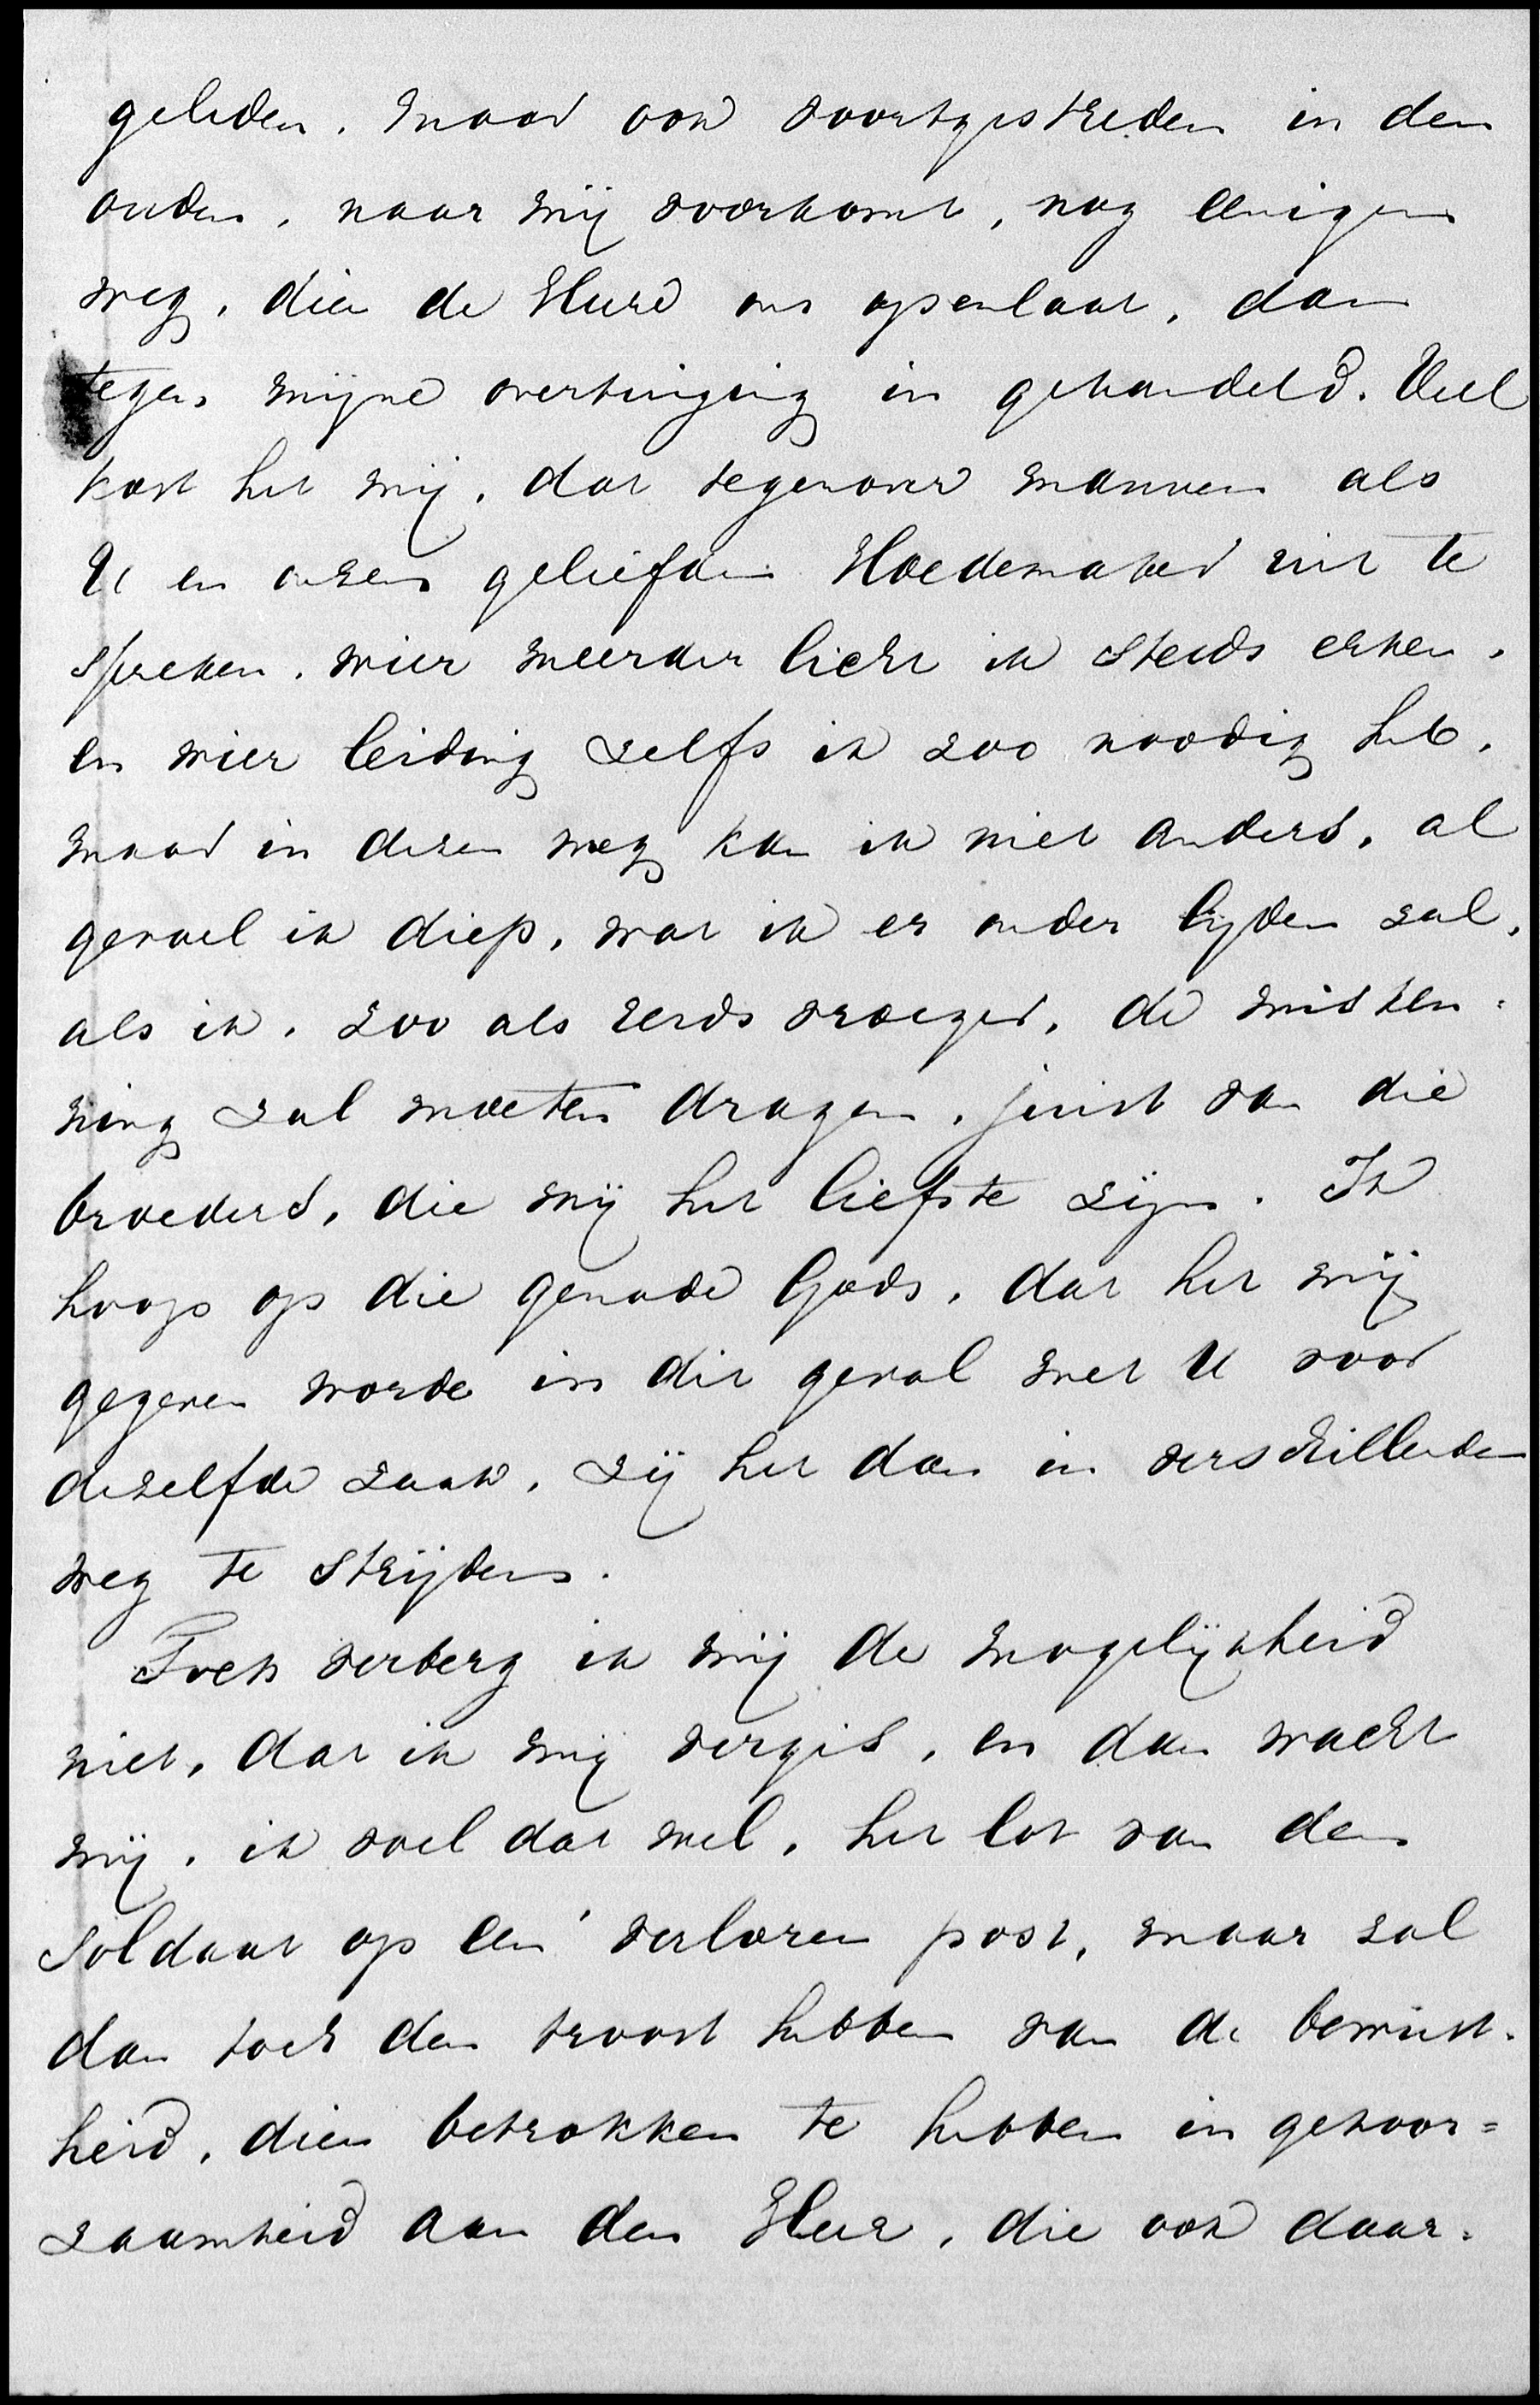 geleden, maar ook voortgestreden in den
ouden, naar mij voorkomt, nog eenigen
weg, dien de Heere ons openlaat, dan
tegen mijne overtuiging in gehandeld. Veel
kost het mij, dat tegenover mannen als
U en onzen geliefden Hoedemaker uit te
spreken, wier meerder licht ik steeds erken,
en wier leiding zelfs ik zoo noodig heb,
maar in dezen weg kan ik niet anders, al
gevoel ik diep, wat ik er onder lijden zal,
als ik, zoo als reeds vroeger, de misken=
ning zal moeten dragen, juist van die
broeders, die mij het liefste zijn. Ik
hoop op die genade Gods, dat het mij
gegeven worde in dit geval met U voor
dezelfde zaak, zij het dan in verschillenden
weg te strijden.
Toch verberg ik mij de mogelijkheid
niet, dat ik mij vergis, en dan wacht
mij, ik voel dat wel, het lot van den
soldaat op een' verloren post, maar zal
dan toch den troost hebben van de bewust=
heid, dien betrokken te hebben in gehoor=
zaamheid aan den Heer, die ook daar=